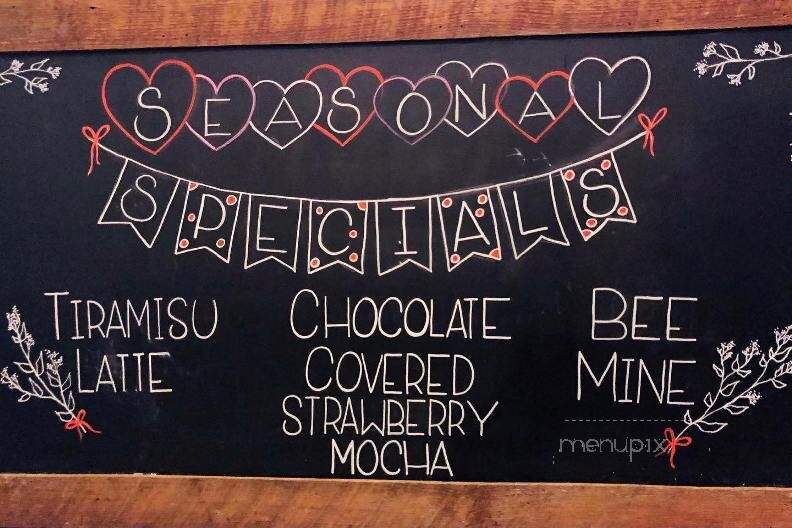 SEASONAL
SPECIALS
TIRAMISU
LATTE
CHOCOLATE
COVERED
STRAWBERRY
MOCHA
BEE
MINE
menupix